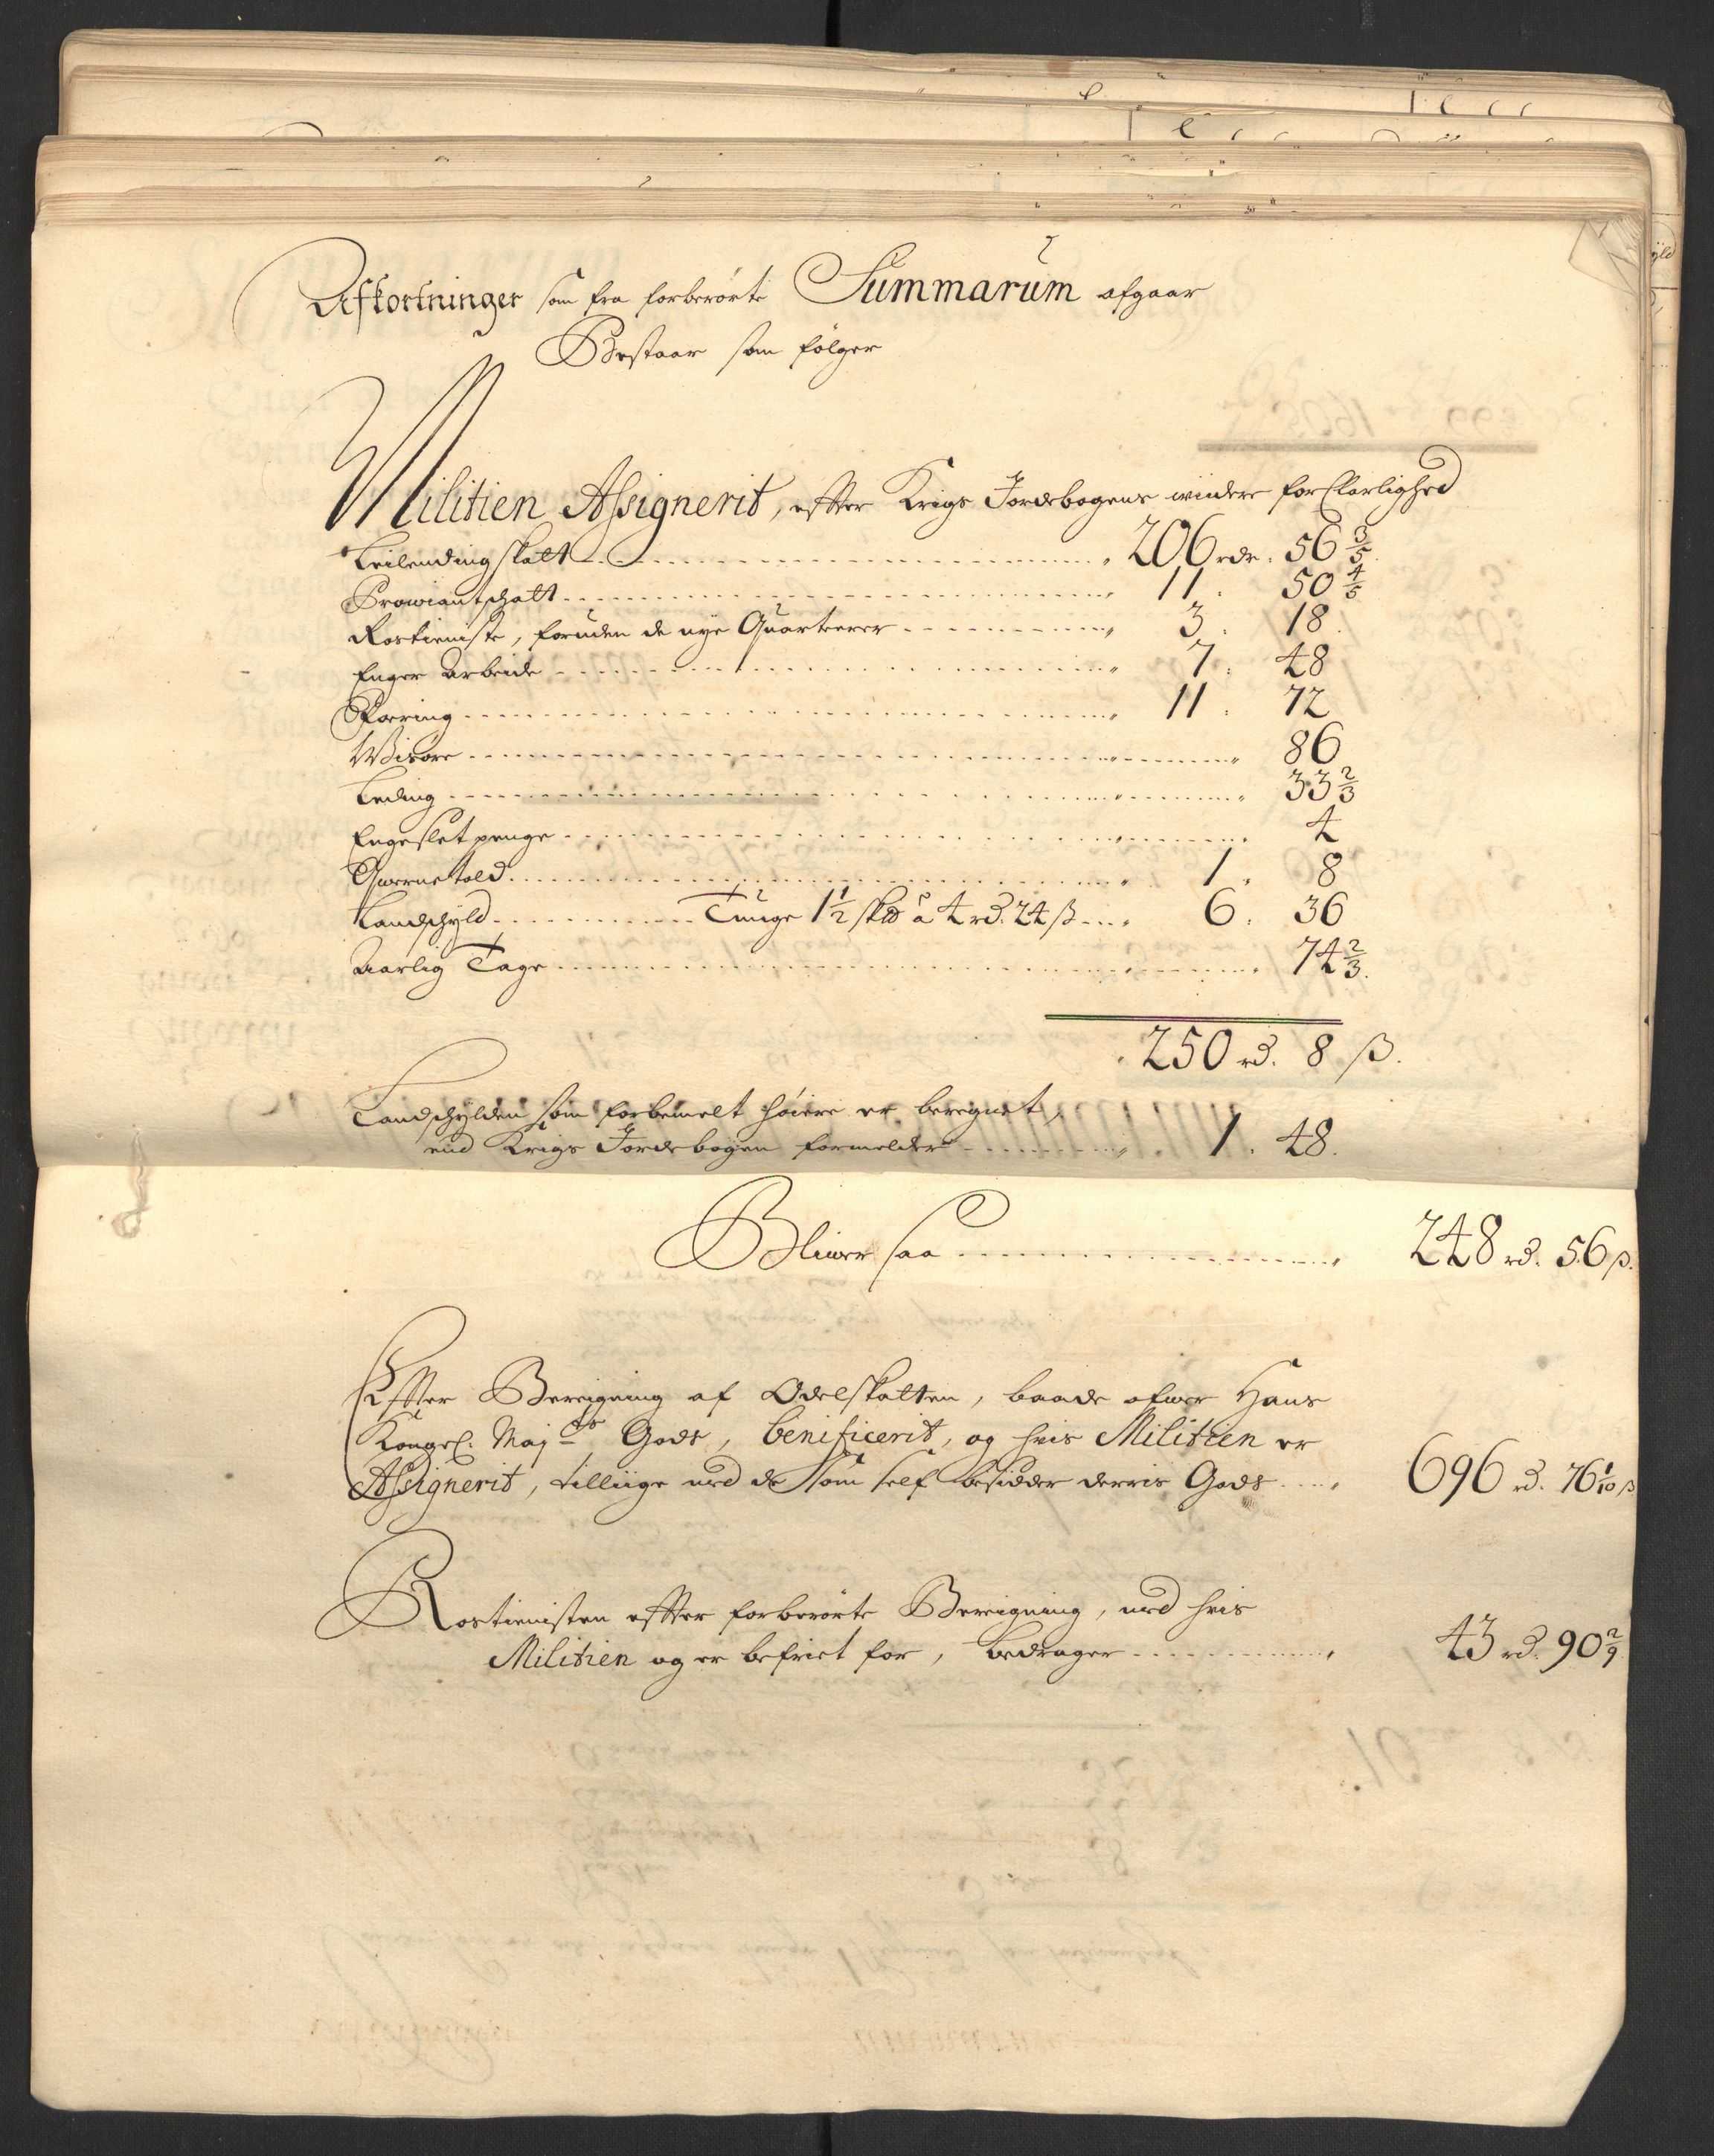 Afkortninger som fra forberørte Summarum afgaar
Bestaar som følger
Militien Assignerit, efter Krigs Jordebogens widere forklarlighed
Leilending skatt 206 rdr. 56 3/5
Prowiantschatt 11. 50 4/5
Rostieniste, foruden de nye Quarterer 3. 18
Enger Arbeide 7. 48
Foering 11. 72
Wisøre 86
Leding 33 2/3
Engeslet penge 4
Qwernetold 1. 8
Landschyld Tunge 1 1/2 skld à 4 rd. 24 ß 6. 36
Aarlig Tage 74 2/3
250 rd. 8 ß.
Landschylden som forbemelt høiere er beregnet,
end Krigs Jordebogen formelder 1. 48.
Bliwer saa 248 rd. 56 ß.
Efter Bereigning af Odelskatten, baade ofwer Hans
Kongel. Maj.ts Gods, benificerit, og hvis Militien er
Assignerit, tilliige med de som self besidder derris Gods 696 rd. 76 1/10 ß
Rostienisten efter forberørte Bereigning, med hvis
Militien og er befriet for, bedrager 43 rd. 90 2/9